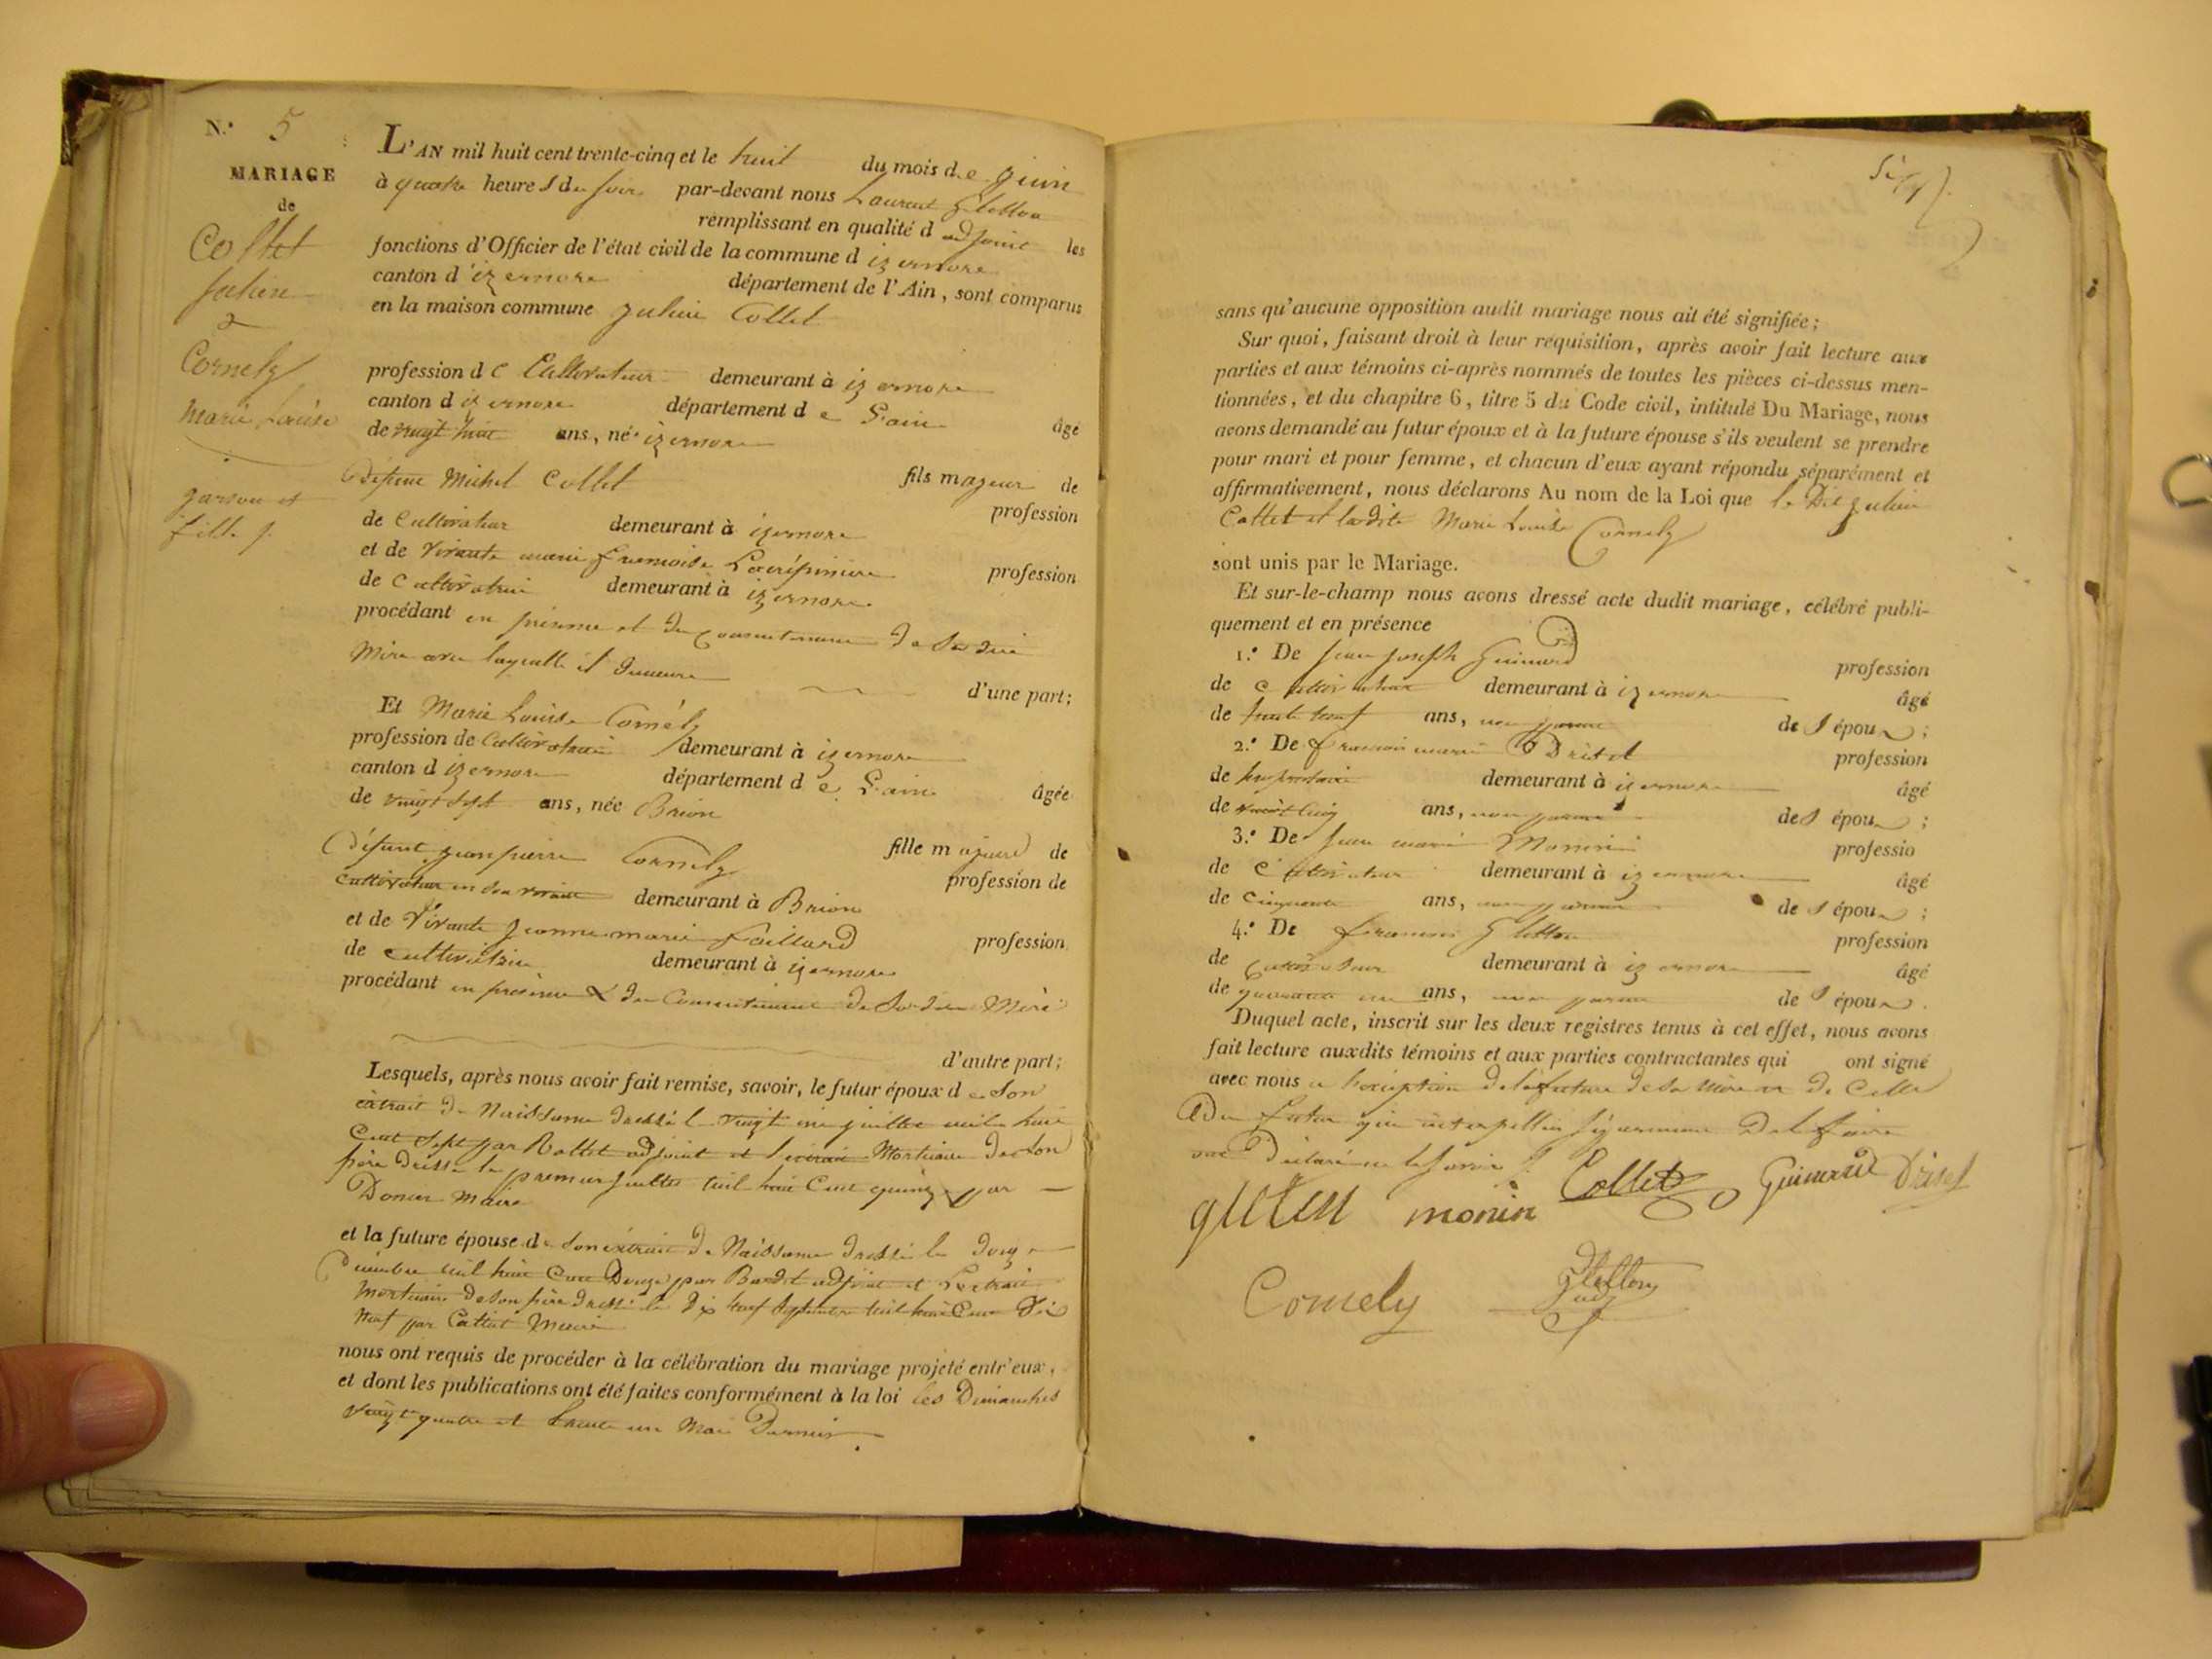 N.° 5
MARIAGE
de
Collet
Julien
&
Cornely
Marie Louise
garson et
fille
L'AN mil huit cent trente-cinq et le huit du mois de juin
à quatre heures du soir par-devant nous Laurent Gletton
remplissant en qualité d adjoint les
fonctions d'Officier de l'état civil de la commune d izernore
canton d'izernore département de l'Ain, sont comparus
en la maison commune Julien Collet
profession de Cultivateur demeurant à izernore
canton d izernore département de L'ain âgé
de vingt huit ans, né izernore
fils majeur de
défunt Michel Collet profession
de Cultivateur demeurant à izernore
et de vivante marie francoise profession
de Cultivatrice demeurant à izernore
procédant en présence et du consentement de sa dite
Mère avec laquelle il demeure
d'une part;
Et Marie Louise Cornely
profession de Cultivatrice demeurant à izernore
canton d izernore département de L'ain âgée
de vingt sept ans, née Brion
fille majeure de
défunt jean pierre Cornely profession de
cultivateur en son vivant demeurant à Brion
et de vivante jeanne marie profession
de cultivatrice demeurant à izernore
procédant en présence & du Consentement de sa dite Mère
d'autre part;
Lesquels, après nous avoir fait remise, savoir, le futur époux de son
extrait de Naissance dressé le vingt juillet mil huit
Cent sept par adjoint et l'extrait Mortuaire de son
père dressé le premier juillet mil huit Cent quinze par
Maire
et la future épouse de son extrait de Naissance dressé le
mil huit Cent par adjoint et L'extrait
Mortuaire de son père dressé le dix neuf septembre mil huit Cent dix
Neuf par Maire
nous ont requis de procéder à la célébration du mariage projeté entr'eux,
et dont les publications ont été faites conformément à la loi les Dimanches
vingt quatre et trente un Mai Dernier
sans qu'aucune opposition audit mariage nous ait été signifiée;
Sur quoi, faisant droit à leur réquisition, après avoir fait lecture aux
parties et aux témoins ci-après nommés de toutes les pièces ci-dessus men-
tionnées, et du chapitre 6, titre 5 du Code civil, intitulé Du Mariage, nous
avons demandé au futur époux et à la future épouse s'ils veulent se prendre
pour mari et pour femme, et chacun d'eux ayant répondu séparément et
affirmativement, nous déclarons Au nom de la Loi que le Dit julien
Collet et la dite Marie Louise Cornely
sont unis par le Mariage.
Et sur-le-champ nous avons dressé acte dudit mariage, célébré publi-
quement et en présence
1.° De jean joseph Guinard profession
de Cultivateur demeurant à izernore âgé
de trente neuf ans, non parent des époux;
2.° De francois marie Drisel profession
de demeurant à izernore âgé
de cinq ans, non parent des époux;
3.° De jean marie Monin professio
de Cultivateur demeurant à izernore âgé
de cinquante ans, non parent des époux;
4.° De francois Gletton profession
de Cultivateur demeurant à izernore âgé
de quarante un ans, non parent des époux.
Duquel acte, inscrit sur les deux registres tenus à cet effet, nous avons
fait lecture auxdits témoins et aux parties contractantes qui ont signé
avec nous a l'exception de la future de sa mère et de Celle
Du futur qui interpellées séparément De le faire
ont Déclaré ne le savoir
monin Collet Guinard Drisel
Cornely Gletton
adj